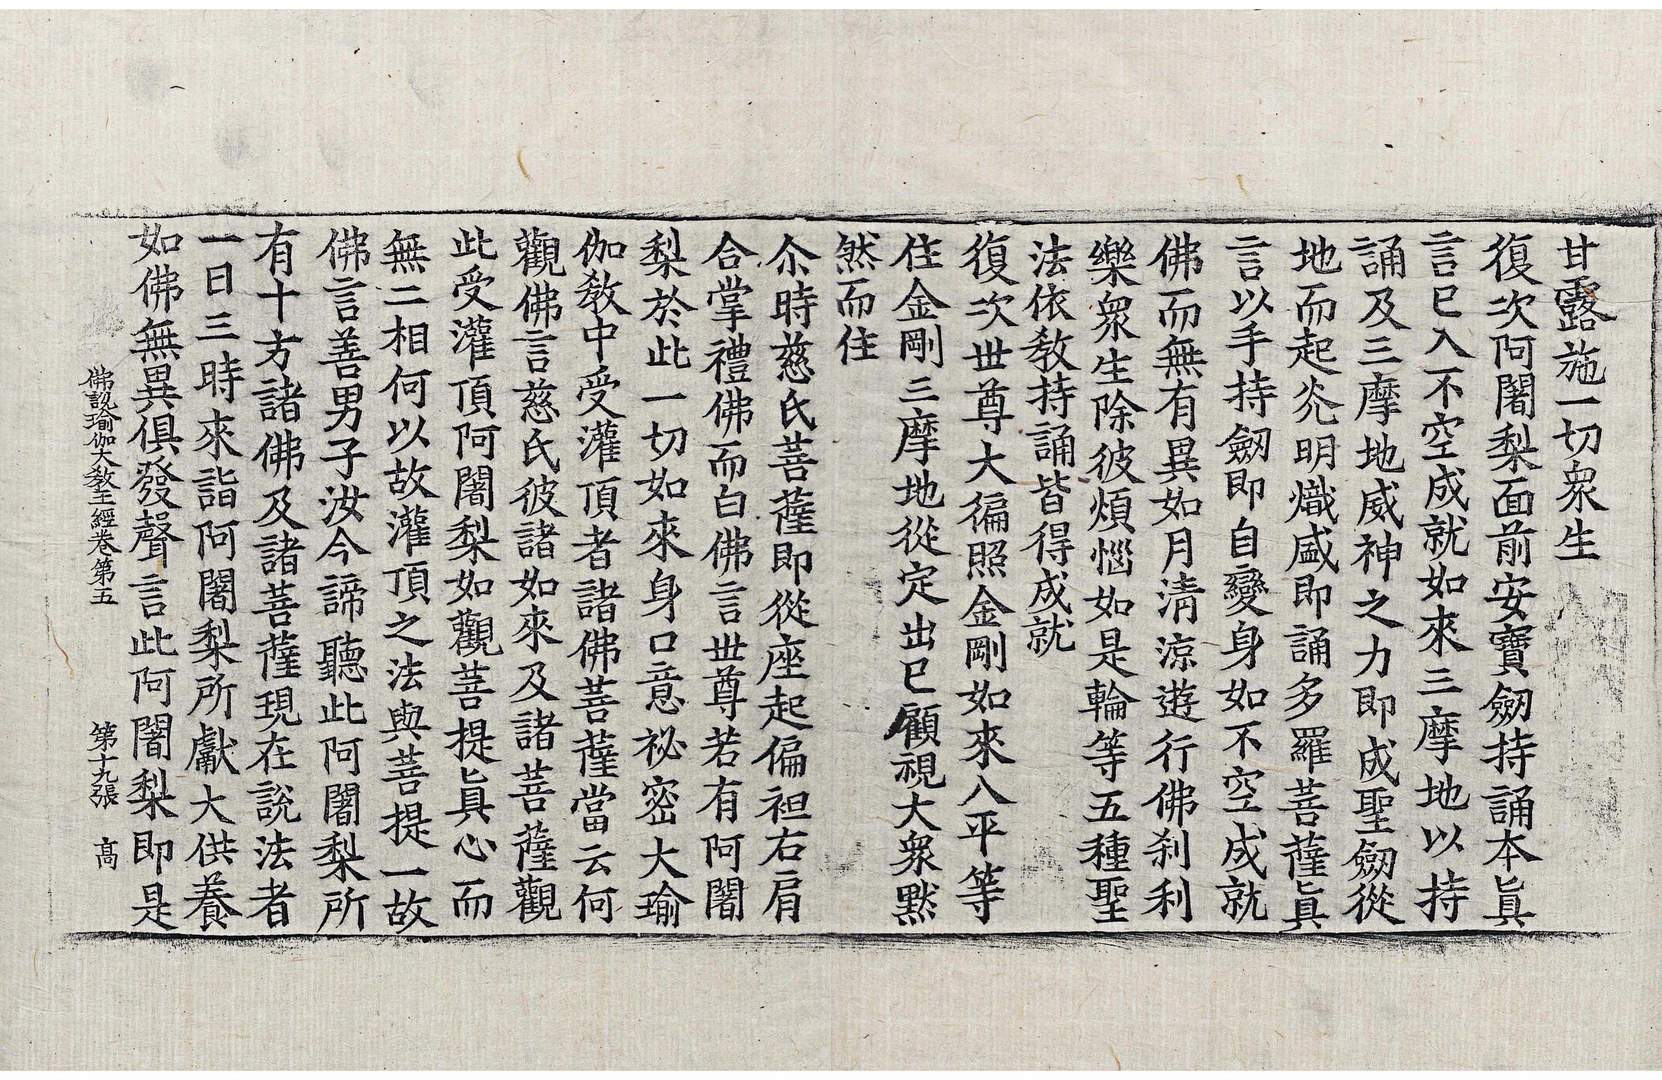 甘露施一切衆生
復次阿闍梨面前安寶劒持誦本眞
言已入不空成就如來三摩地以持
誦及三摩地威神之力即成聖劒從
地而起炎明熾盛即誦多羅菩薩眞
言以手持劒即自變身如不空成就
佛而無有異如月清涼遊行佛刹利
樂衆生除彼煩惱如是輪等五種聖
法依敎持誦皆得成就
復次世尊大徧照金剛如來入平等
住金剛三摩地從定出已顧視大衆默
然而住
尒時慈氏菩薩即從座起偏袒右肩
合掌禮佛而白佛言世尊若有阿闍
梨於此一切如來身口意祕密大瑜
伽敎中受灌頂者諸佛菩薩當云何
觀佛言慈氏彼諸如來及諸菩薩觀
此受灌頂阿闍梨如觀菩提眞心而
無二相何以故灌頂之法與菩提一故
佛言善男子汝今諦聽此阿闍梨所
有十方諸佛及諸菩薩現在說法者
一日三時來詣阿闍梨所獻大供養
如佛無異俱發聲言此阿闍梨即是
佛說瑜伽大敎王經卷第五 第十九張 高